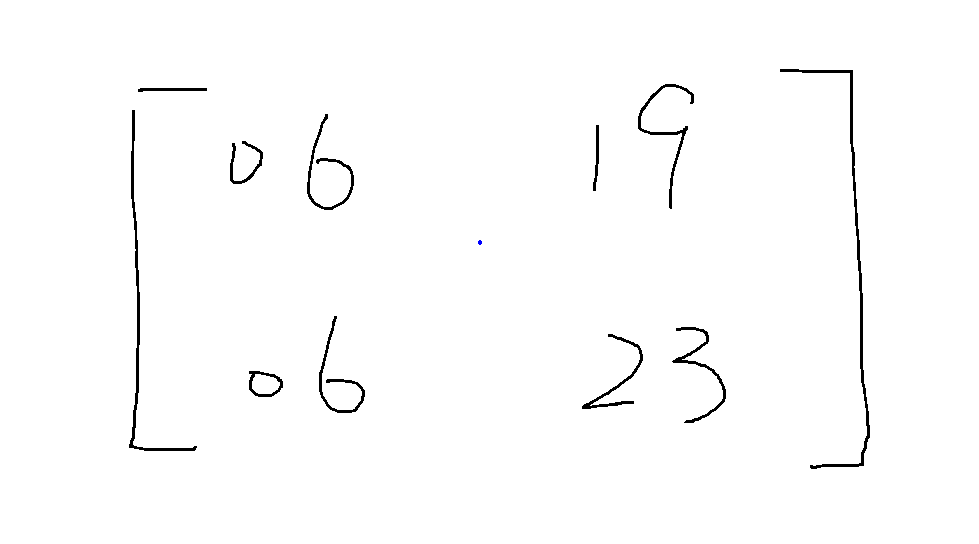 06 19
06 23